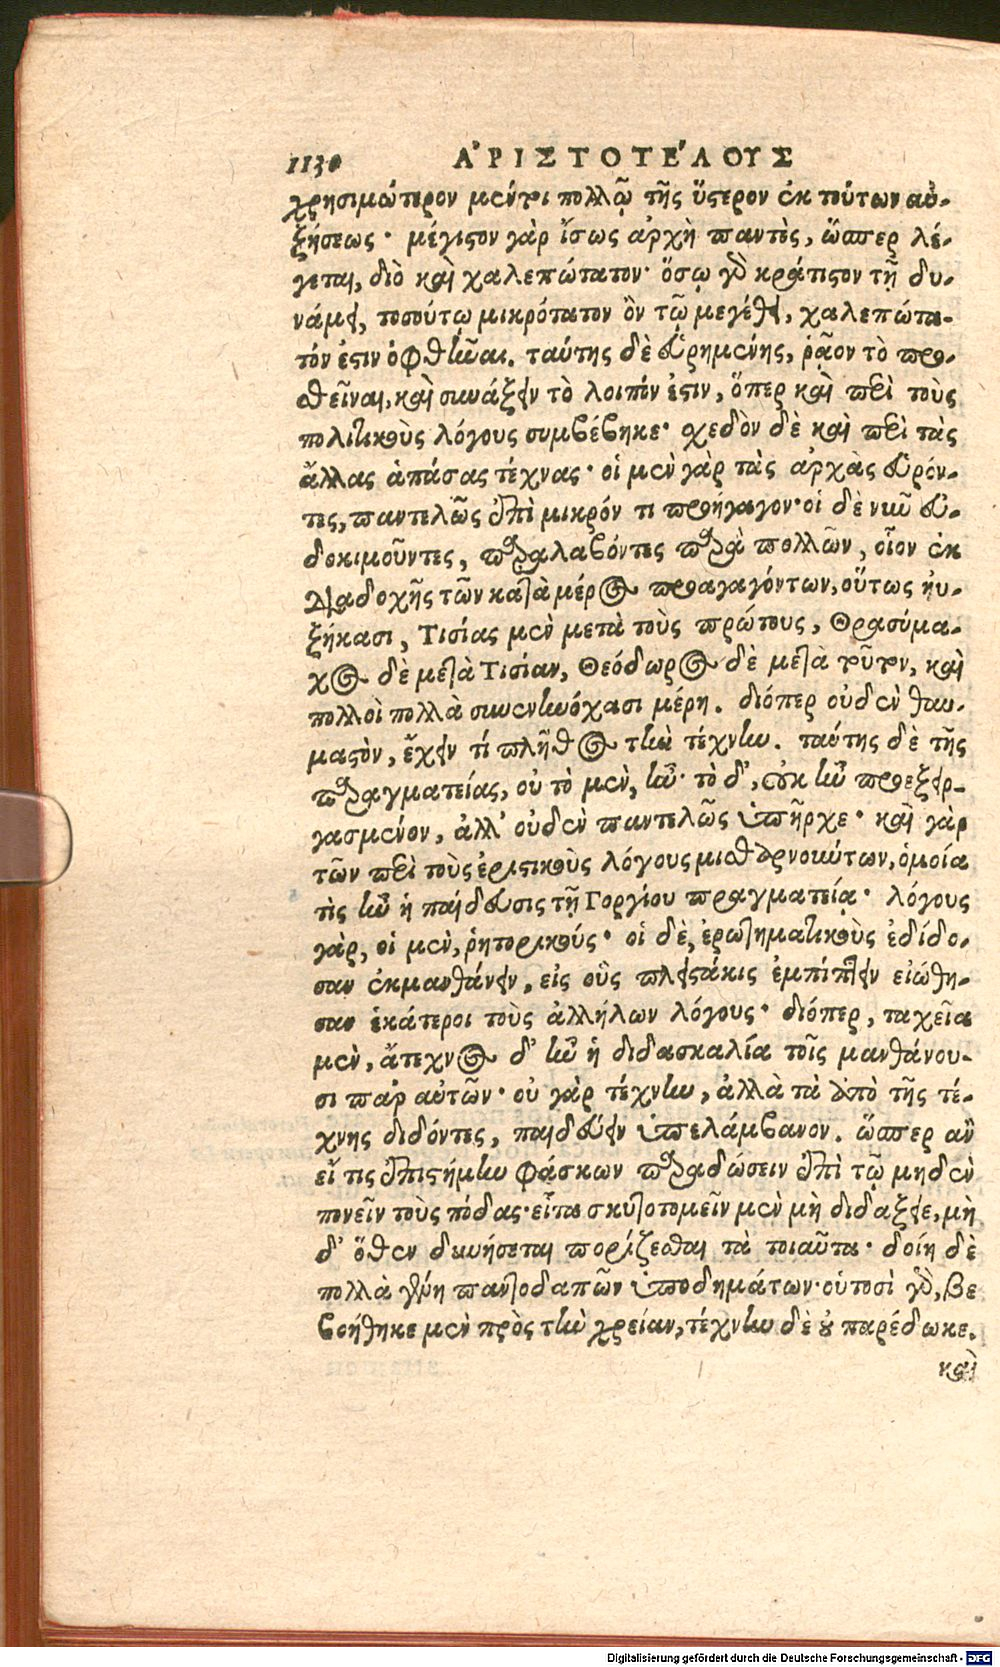 1130 ἈΡΙΣΤΟΤΈΛΟΥΣ
χρησιμώτερον μέντοι πολλῷ τῆς ὕστερον ἐκ τούτων αὐ-
ξήσεως· μέγιστον γὰρ ἴσως ἀρχὴ παντὸς, ὥσπερ λέ-
γεται, διὸ καὶ χαλεπώτατον· ὅσῳ γὸ κράτιστον τῇ δυ-
νάμει, τοσούτῳ μικρότατον ὂν τῷ μεγέθει, χαλεπώτα-
τόν ἐστιν ὀφθῆναι. ταύτης δὲ εὑρημένης, ῥᾷον τὸ προσ-
θεῖναι, καὶ συνάξειν τὸ λοιπόν ἐστιν, ὅπερ καὶ περὶ τοὺς
πολιτικοὺς λόγους συμβέβηκε· σχεδὸν δὲ καὶ περὶ τὰς
ἄλλας ἁπάσας τέχνας· οἱ μὲν γὰρ τὰς ἀρχὰς εὑρόν-
τες, παντελῶς ἐπὶ μικρόν τι προήγαγον· οἱ δὲ νῦν εὐ-
δοκιμοῦντες, παραλαβόντες παρὰ πολλῶν, οἷον ἐκ
διαδοχῆς τῶν κατὰ μέρος προαγαγόντων, οὕτως ηὐ-
ξήκασι, Τισίας μὲν μετὰ τοὺς πρώτους, Θρασύμα-
χος δὲ μετὰ Τισίαν, Θεόδωρος δὲ μετὰ τοῦτον, καὶ
πολλοὶ πολλὰ συνενηνόχασι μέρη. διόπερ οὐδὲν θαυ-
μαστὸν, ἔχειν τί πλῆθος τὴν τέχνην. ταύτης δὲ τῆς
πραγματείας, οὐ τὸ μὲν, ἦν· τὸ δ’, οὐκ ἦν προεξειρ-
γασμένον, ἀλλ’ οὐδὲν παντελῶς ὑπῆρχε· καὶ γὰρ
τῶν περὶ τοὺς ἐριστικοὺς λόγους μισθαρνούντων, ὁμοία
τὶς ἦν ἡ παίδευσις τῇ Γοργίου πραγματείᾳ· λόγους
γὰρ, οἱ μὲν, ῥητορικούς· οἱ δὲ, ἐρωτηματικοὺς ἐδίδο-
σαν ἐκμανθάνειν, εἰς οὓς πλειστάκις ἐμπίπτειν εἰώθη-
σαν ἑκάτεροι τοὺς ἀλλήλων λόγους· διόπερ, ταχεῖα
μὲν, ἄτεχνος δ’ ἦν ἡ διδασκαλία τοῖς μανθάνου-
σι παρ’ αὐτῶν· οὐ γὰρ τέχνην, ἀλλὰ τὰ ἀπὸ τῆς τέ-
χνης διδόντες, παιδεύειν ὑπελάμβανον. ὥσπερ ἂν
εἴ τις ἐπιστήμην φάσκων παραδώσειν ἐπὶ τῷ μηδὲν
πονεῖν τοὺς πόδας· εἶτα σκυτοτομεῖν μὲν μὴ διδάξειε, μὴ
δ’ ὅθεν δυνήσεται πορίζεσθαι τὰ τοιαῦτα· δοίη δὲ
πολλὰ γένη παντοδαπῶν ὑποδημάτων· οὑτοσὶ γὸ, βε
βοήθηκε μὲν πρὸς τὴν χρείαν, τέχνην δὲ οὐ παρέδωκε.
καὶ
Digitalisierung gefördert durch die Deutsche Forschungsgemeinschaft - DFG